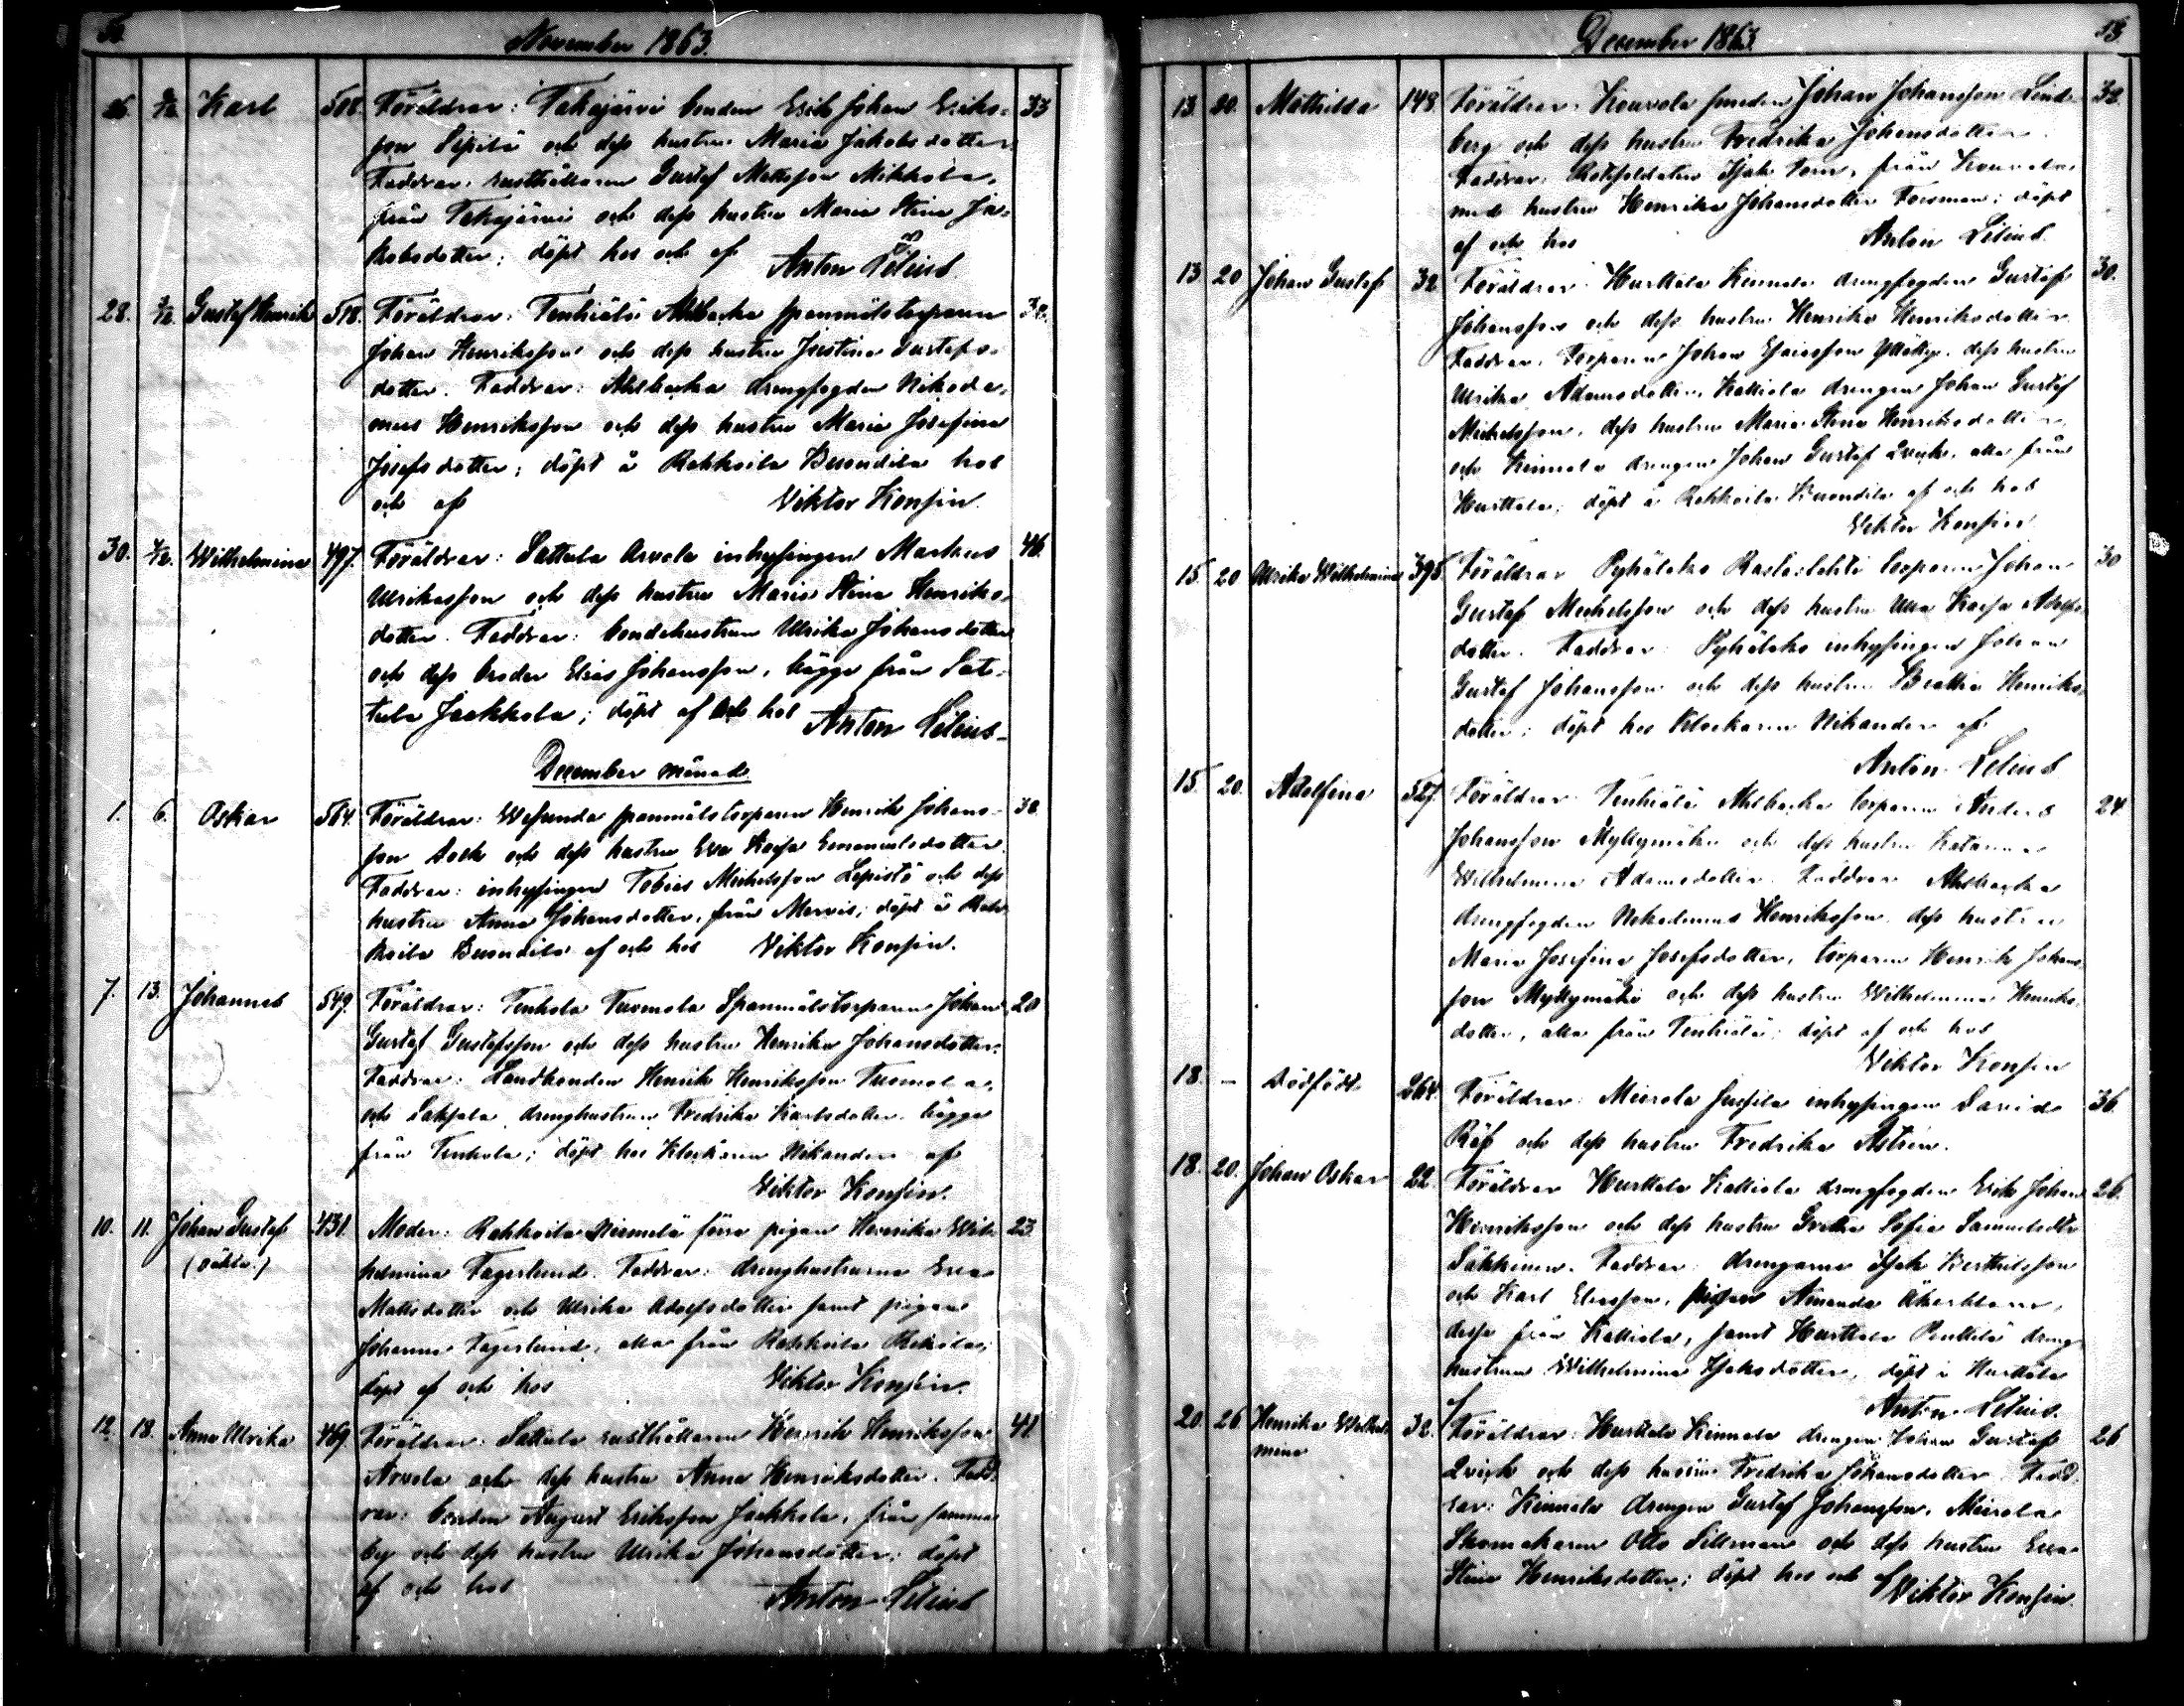 November 1863.
26. Karl 508. Föräldrar: Takajärvi bonden Erik Johan Eriks- 33
son Sipilä och dess hustru Maria Jakobsdotter.
Faddrar: rusthållaren Gustaf Mattsson Mikkola,
från Takajärvi och dess hustru Maria Stina Ja-
kobsdotter; döpt hos och af Anton Lilius
28. Gustaf Henrik 518. Föräldrar: Tenhiälä Ahlbacka spanmålstorparen 32.
Johan Henriksson och dess hustru Justina Gustafs-
dotter. Faddrar: Ahlbacka drengfogden Nikode-
mus Henriksson och dess hustru Maria Josefina
Josefsdotter; döpt å Rahkoila Buondila hos
och af Viktor Konsin.
30. Wilhelmina 497. Föräldrar: Sattula Arvola inhysingen Markus 46.
Ulriksson och dess hustru Maria Stina Henriks-
dotter. Faddrar: bondehustrun Ulrika Johansdotter
och dess broder Elias Johansson, bägge från Sat-
tula Jaakkola; döpt af och hos Anton Lilius
December månad
1. 6. Oskar 564. Föräldrar: Wesunda spanmålstorparen Henrik Johans- 38
son och dess hustru Eva Kajsa Emanuelsdotter.
Faddrar: inhysingen Tobias Michelsson Lepistö och dess
hustru Anna Johansdotter, från Mervis; döpt å Rah-
koila Buondila af och hos Viktor Konsin.
7. 13. Johannes 549. Föräldrar: Tenhola Tuomola Spanmålstorparen Johan 20
Gustaf Gustafsson och dess hustru Henrika Johansdotter.
Faddrar: Landbonden Henrik Henriksson Tuomola,
och Saksala drenghustrun Fredrika Karlsdotter, bägge
från Tenhola; döpt hos Klockaren Nikander af
Viktor Konsin.
10. 11. Johan Gustaf 431. Moder: Rahkoila Niemelä förra pigan Henrika Wil- 23.
(oäkta)
helmina Fagerlund. Faddrar: drenghustrurna Eva
Mattsdotter och Ulrika Adolfsdotter samt pigan
Johanna Fagerlund, alla från Rahkoila
döpt af och hos Viktor Konsin.
12. 18. Anna Ulrika 469. Föräldrar: Sattula rusthållaren Henrik Henriksson 41
Arvola och dess hustru Anna Henriksdotter. Fadd-
rar: bonden August Eriksson Jaakkola, från samma
by och dess hustru Ulrika Johansdotter; döpt
af och hos Anton Lilius
December 1863.
13. 20. Mathilda 148. Föräldrar: Kouvola smeden Johan Johansson Lind- 32.
berg och dess hustru Fredrika Johansdotter.
Faddrar: Rotesoldaten Isak Torn, från Kouvola
med hustru Henrika Johansdotter Forsman; döpt
af och hos Anton Lilius.
13 20 Johan Gustaf 32 Föräldrar: Hurttala Kinnala drengfogden Gustaf 30.
Johansson och dess hustru Henrika Henriksdotter.
Faddrar: Torparen Johan Esaiasson dess hustru
Ulrika Adamsdotter, Kattiola drengen Johan Gustaf
Michelsson, dess hustru Maria Stina Henriksdotter
och Kinnala drengen Johan Gustaf Qvick, alla från
Hurttala; döpt å Rahkoila Buondila af och hos
Viktor Konsin
15. 20 Ulrika Wilhelmina 395. Föräldrar: Pyhälahs torparen Johan 30
Gustaf Michelsson och dess hustru Ulla Kajsa Adolfs-
dotter. Faddrar: inhysingen Johan
Gustaf Johansson och dess hustru Beatha Henriks-
dotter; döpt hos Klockaren Nikander af
Anton Lilius
15. 20. Adolfina 527. Föräldrar: Tenhiälä Ahlbacka torparen Anders 24
Johansson Myllymäki och dess hustru Katarina
Wilhelmina Adamsdotter. Faddrar: Ahlbacka
drengfogden Nikodemus Henriksson, dess hustru
Maria Josefina Josefsdotter, torparen Henrik Johans-
son Myllymäki och dess hustru Wilhelmina Henriks-
dotter, alla från Tenhiälä; döpt af och hos
Viktor Konsin
18. – Dödfödt 264. Föräldrar: Mierola Jussila inhysingen David 36.
Räf och dess hustru Fredrika Åström.
18. 20. Johan Oskar 22. Föräldrar: Hurttala Kattiola drengfogden Erik Johan 26.
Henriksson och dess hustru Greta Sofia Samuelsdtr
Säkkinen. Faddrar: drengarne Isak Berthilsson
och Karl Eliasson, pigan Amanda
dessa från Kattiola, samt Hurttala Penttilä dreng-
hustrun Wilhelmina Isaksdotter, döpt i Hurttala
af Anton Lilius.
20. 26. Henrika Wilhel- 32. Föräldrar: Hurttala Kinnala drengen Johan Gustaf 26
mina
Qvick och dess hustru Fredrika Johansdotter. Fadd-
rar: Kinnala drengen Gustaf Johansson, Mierola
Skomakaren Otto Sillman och dess hustru Eva
Stina Henriksdotter; döpt hos och af Viktor Konsin.